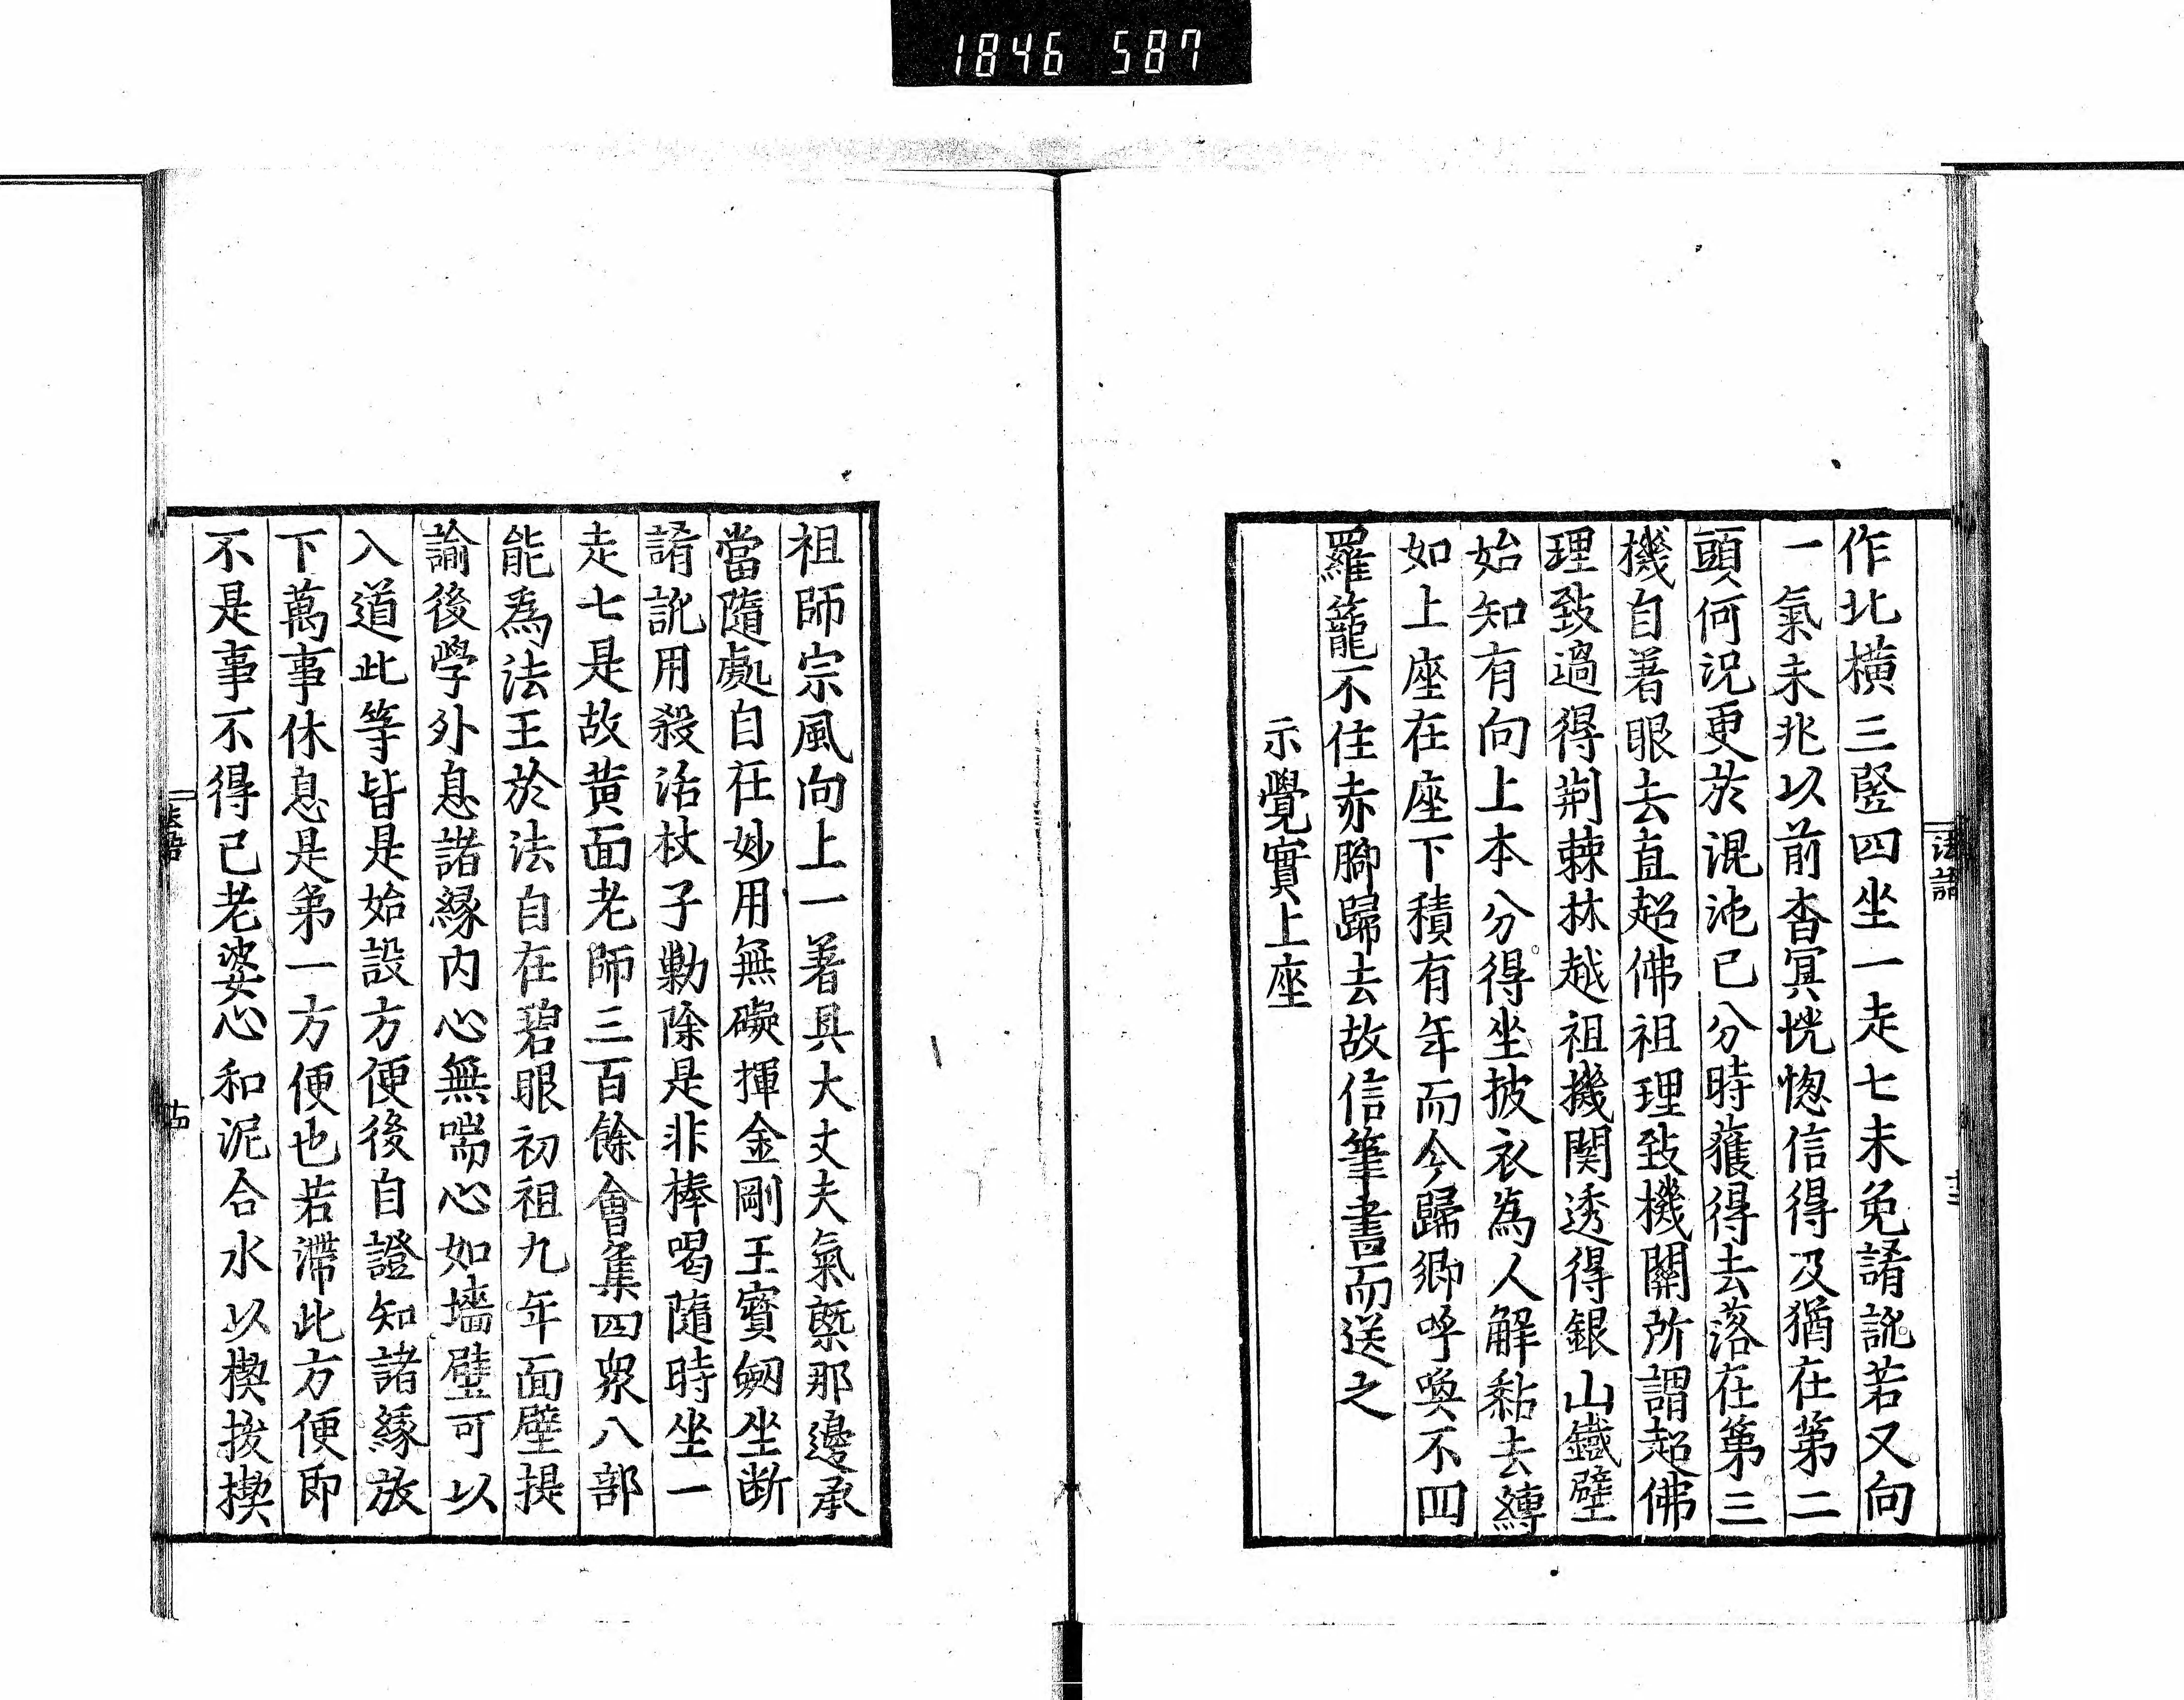 1846 587
法語
十三
作北橫三竪四坐一走七未免誵訛若又向
一氣未兆以前杳冥恍惚信得及猶在第二
頭何況更於混沌已分時薙得去落在第三
機自著眼去直超佛祖理致機關所謂超佛
理致過得荆棘林越祖機関透得銀山鐵壁
始知有向上本分得坐披衣為人解黏去縛
如上座在座下積有年而今歸鄉呼喚不回
羅籠不住赤脚歸去故信筆書而送之
示覺實上座
祖師宗風向上一著具大丈夫氣槩那邊承
當隨處自在妙用無礙揮金剛王寳劒坐断
誵訛用殺活杖子勦除是非棒喝隨時坐一
走七是故黃面老師三百餘會集四衆八部
能為法王於法自在碧眼初祖九年面壁提
諭後學外息諸緣內心無喘心如墻壁可以
入道此等皆是始設方便後自證知諸緣放
下萬事休息是第一方便也若滯此方便即
不是事不得已老婆心和泥合水以楔拔楔
法語
十四